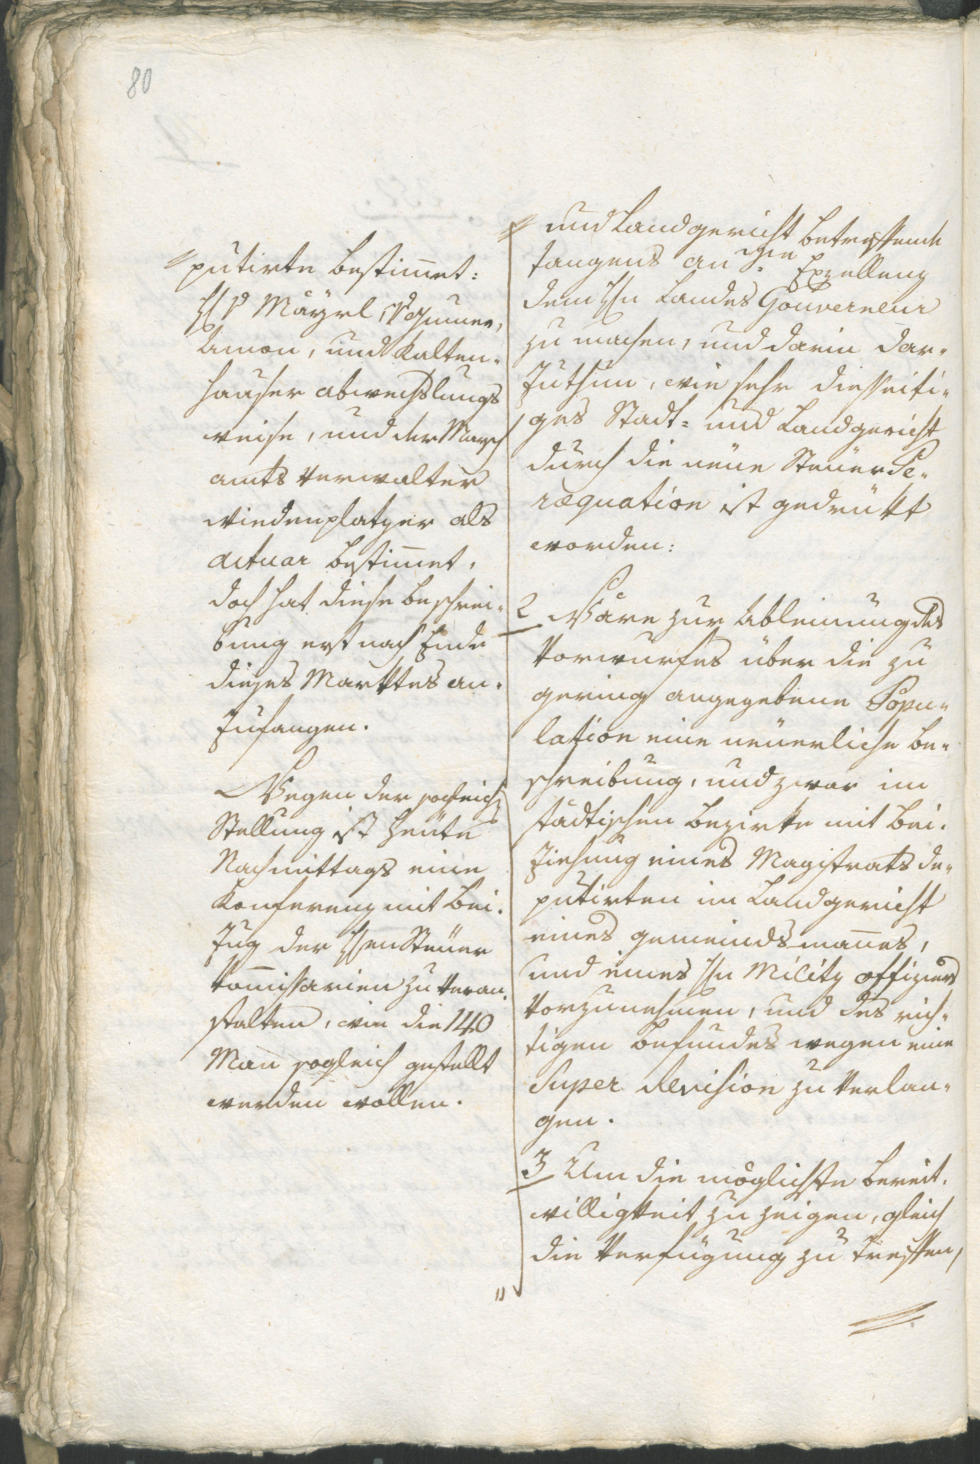 80
putirte bestimmet:
H P Mäyrl,
Amon, und Kalten-
hauser abwechslungs
weise, und der Merch
amts Verwalter
Wiedenplatzer als
Actuar bestimmet,
doch hat diese beschrei-
bung erst nach Ende
dieses Marktes an-
zufangen.
Wegen der sogleich
Stellung ist heute
Nachmittags eine
Konferenz mit Bei-
zug der Hen Steuer
Komissarien zu veran-
stalten, wie die 140
Mann sogleich gestellt
werden wollen.
und Landgericht betreffende
langens an die Exzellenz
dem Hn Landes Gouverneur
zu machen, und darin dar-
zuthun, wie sehr diesseiti-
ges Stadt- und Landgericht
durch die neue Steuer Pe-
raequation ist gedrükt
worden:
2 Wäre zur Ableinung des
Vorwurfes über die zu
gering angegebene Popu-
lation eine neuerliche be-
schreibung, und zwar im
städtischen bezirke mit Bei-
ziehung eines Magistrats de-
putirten im Landgericht
eines gemeindsmanes,
und eines Hn Militz offiziers
vorzunehmen, und des rich-
tigen befundes wegen eine
Super Revision zu verlan-
gen.
3 Um die möglichste bereit-
willigkeit zu zeigen, gleich
die Verfügung zu treffen,